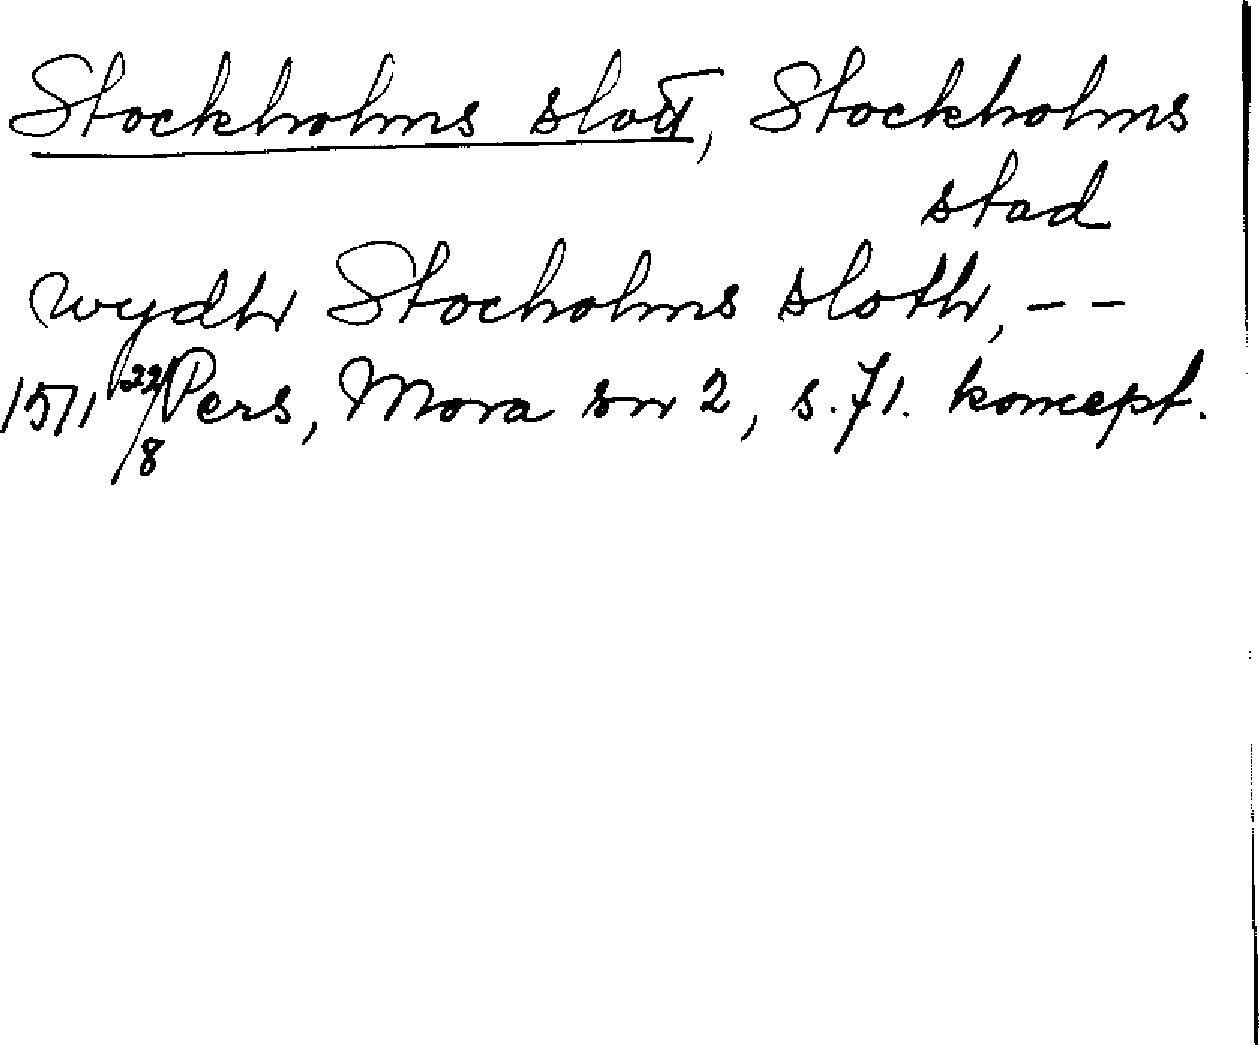 Stockholms slott, Stockholms
stad
wydhr Stocholms sloth, - -
1571 22/8 Pers, Mora sn 2, s. 71. koncept.